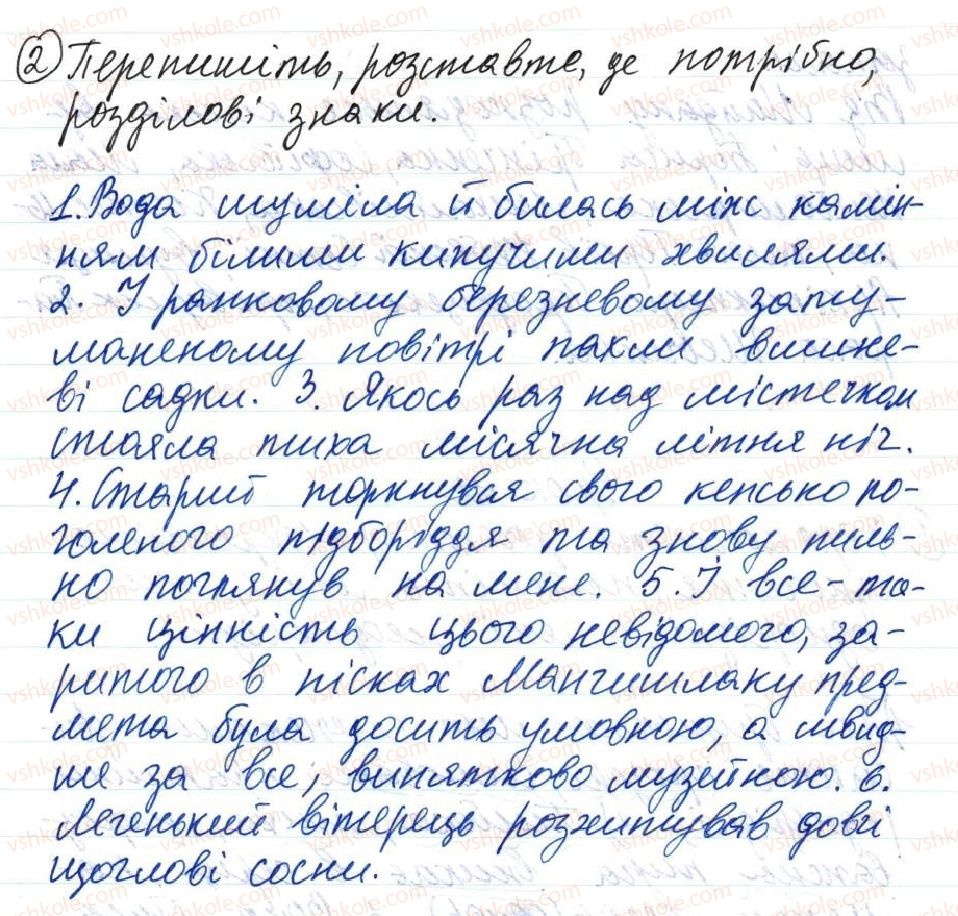 2 Перепишіть, розставте, де потрібно,
розділові знаки.
1. Вода шуміла й билась між камін-
ням білими кипучими хвилями.
2. У ранковому березневому зату-
маненому повітрі пахли вишне-
ві садки. 3. Якось раз над містечком
стояла тиха місячна літня ніч.
4. Старий торкнувся свого кепсько по-
голеного підборіддя та знову пиль-
но поглянув на мене. 5. І все-та-
ки цінність цього невідомого, за-
ритого в пісках Мангишлаку пред-
мета була досить умовною, а швид-
ше за все, винятково музейною. 6.
Легенький вітерець розхитував довгі
щоглові сосни.